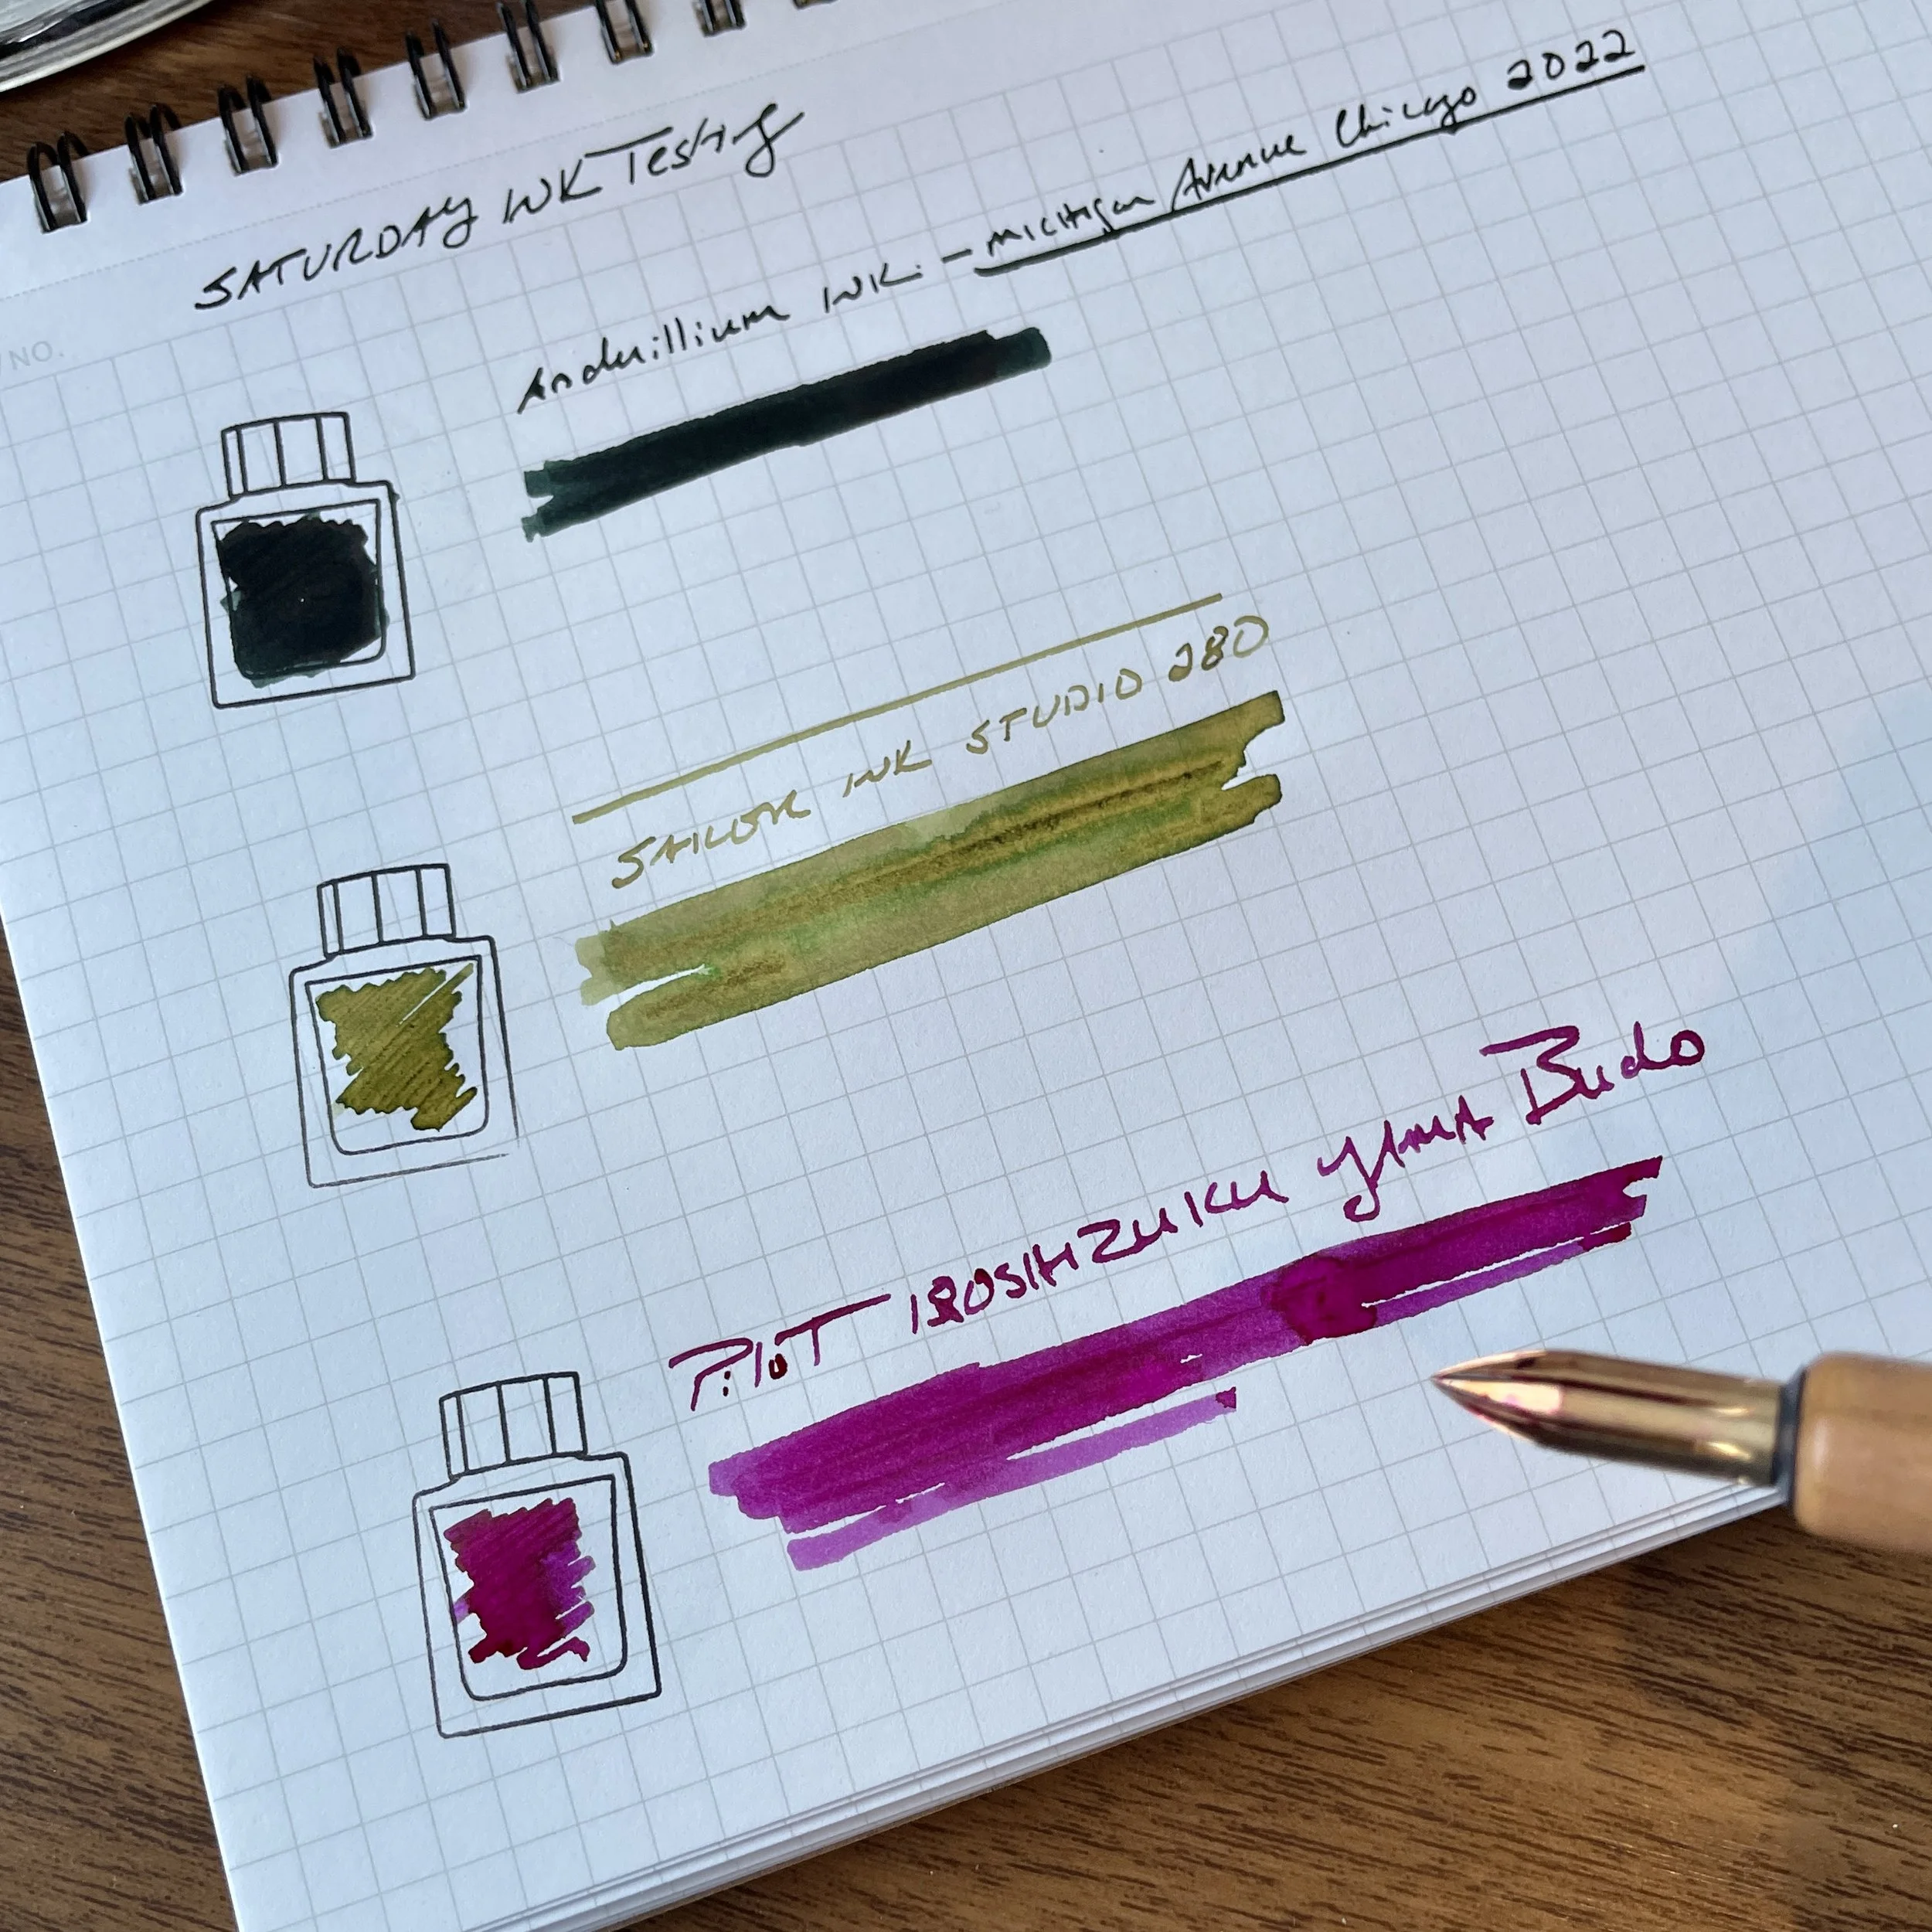 SATURDAY INK Testing
Anderillium INK - Michigan Avenue Chicago 2022
NO.
SAILOR INK STUDIO 280
PiloT IROSHIZUKU YAMA Budo